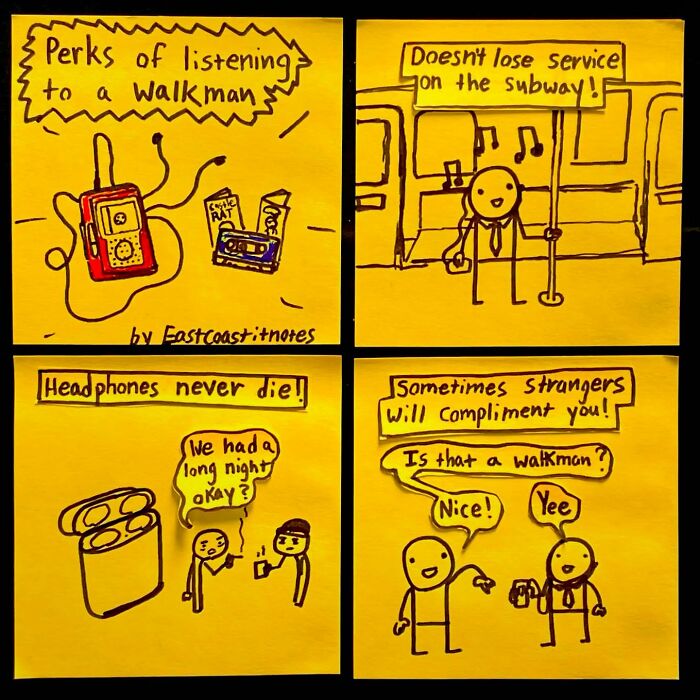 Perks of listening
to a Walkman
Castle
RAT
by Eastcoastitnotes
Doesn't lose service
on the subway!
Headphones never die!
We had a
long night
okay?
Sometimes strangers
will compliment you!
Is that a walkman?
Nice!
Yee